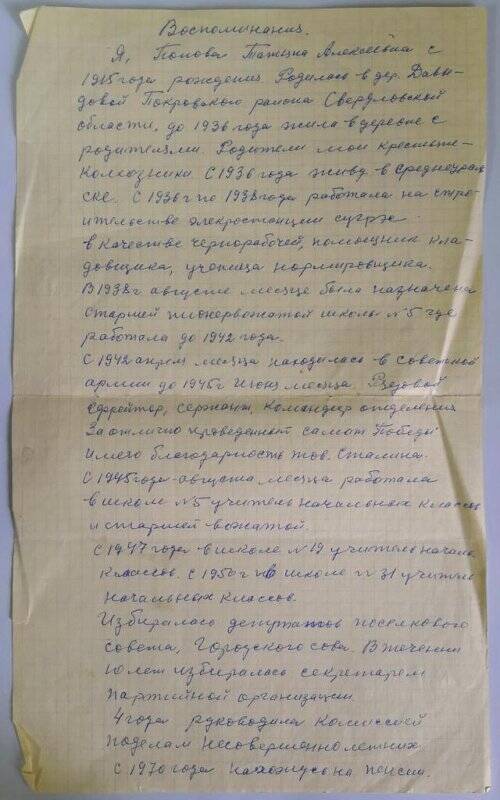 Воспоминания.
Я, Попова Татьяна Алексеевна с
1915 года рождения Родилась в дер. Давы-
довой Покровского района Свердловской
области, до 1936 года жила в деревне с
родителями. Родители мои крестьяне-
колхозники С 1936 года живу в Среднеураль
ске. С 1936 г по 1938 года работала на строи-
ительстве элекростанции сугрэс
в качестве чернорабочей, помощник кла-
довщика, ученица нормировщика.
В 1938 г августе месяце была назначена
старшей пионервожатой школы №5 где
работала до 1942 года.
С 1942 апрель месяца находилась в Советской
армии до 1945 г июнь месяца. Рядовой
Ефрейтор, сержант, командир отделения
За отлично проведенный салют Победы
имею благодарность тов. Сталина.
С 1945 года августа месяца работала
в школе №5 учитель начальных классов
и старшей вожатой.
С 1947 года в школе №19 учитель началь
классов. С 1950 г в школе №31 учитель
начальных классов.
Избиралась депутатов поселкового
совета, Городского сова. В течении
10 лет избиралась секретарем
партийной организации
4 года руководила комиссией
по делам несовершеннолетних
С 1970 года нахожусь на пенсии.